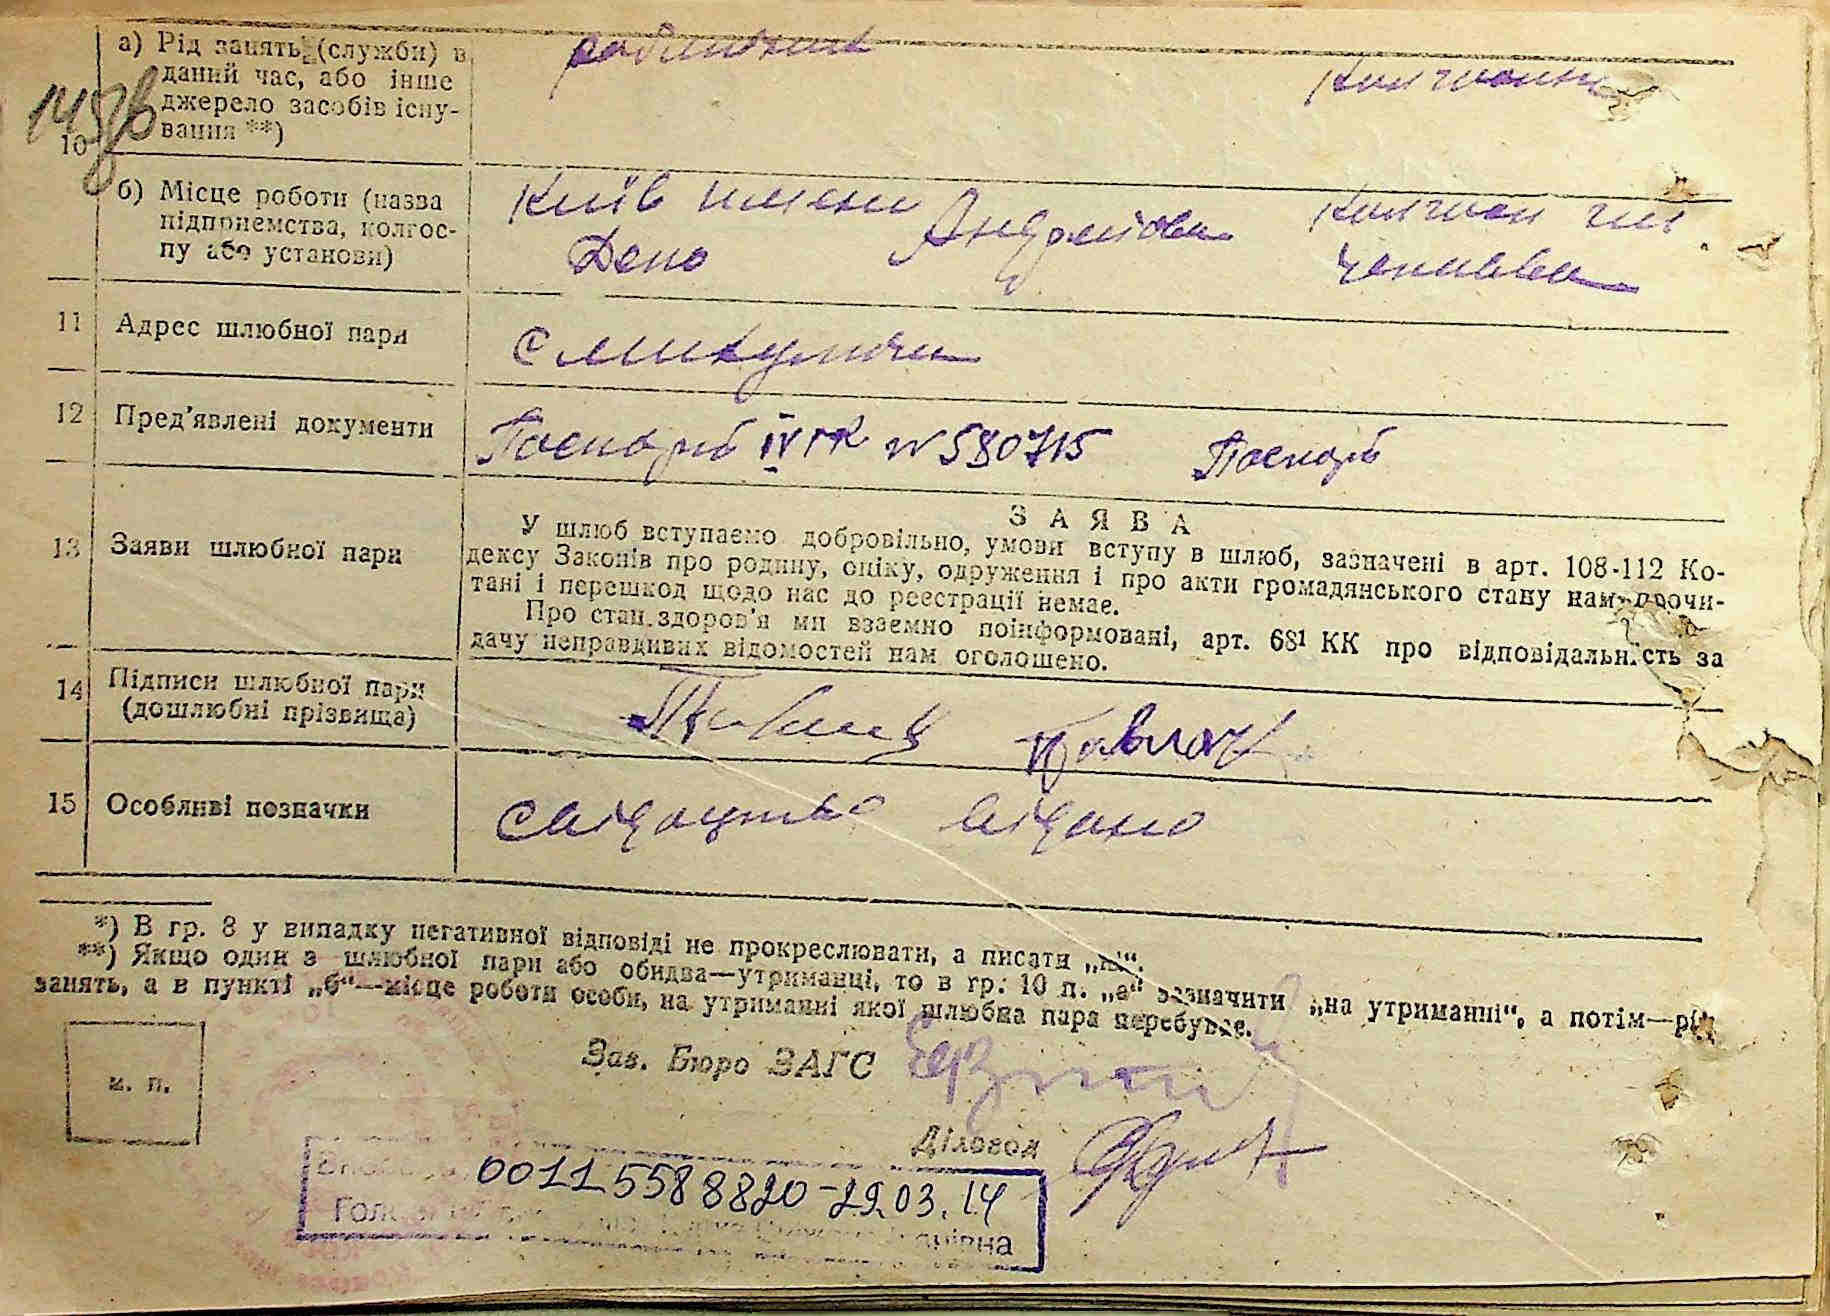 145/в
10
а) Рід занять (служби) в
даний час, або інше
джерело засобів існу-
вання **)
робітник
б) Місце роботи (назва
підприємства, колгос-
пу або установи)
Київ имени Андреєва
Депо
Колгосп ім
Чапаєва
11 Адрес шлюбної пари
12 Пред'явлені документи
Паспорт IV ГК N 580715 Паспорт
13 Заяви шлюбної пари
ЗАЯВА
У шлюб вступаємо добровільно, умови вступу в шлюб, зазначені в арт. 108-112 Ко-
дексу Законів про родину, опіку, одруження і про акти громадянського стану нам прочи-
тані і перешкод щодо нас до реестрації немає.
Про стан здоров'я ми взаємно поінформовані, арт. 68¹ КК про відповідальність за
дачу неправдивих відомостей нам оголошено.
14 Підписи шлюбної пари
(дошлюбні прізвища)
15 Особливі позначки
Свідоцтво видано
*) В гр. 8 у випадку негативної відповіді не прокреслювати, а писати „ні“.
**) Якщо один з шлюбної пари або обидва—утриманці, то в гр. 10 п. „а“ зазначити „на утриманні“, а потім—рід
занять, а в пункті „б“—місце роботи особи, на утриманні якої шлюбна пара перебуває.
м. п.
Зав. Бюро ЗАГС
Діловод
00115588820-29.03.14